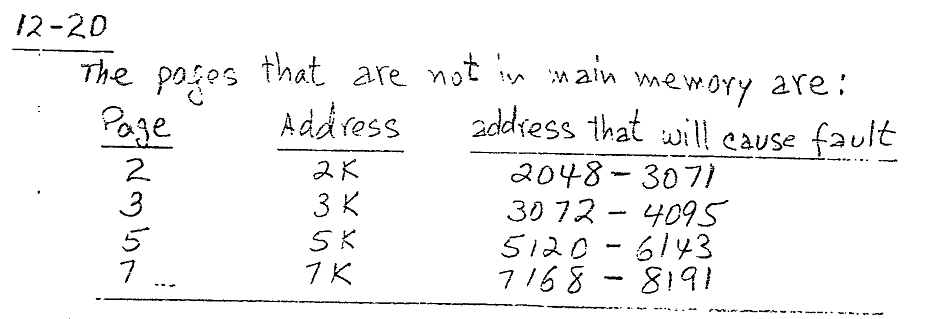 12-20
The pages that are not in main memory are:
Page Address address that will cause fault
2 2K 2048 - 3071
3 3K 3072 - 4095
5 5K 5120 - 6143
7 ... 7K 7168 - 8191